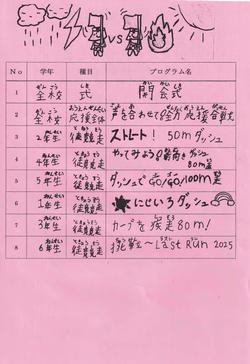 VS
No 学年 種目 プログラム名
1 全校 式 開会式
2 全校 応援全体 声を合わせて
3 2年生 徒競走 ストレート! 50mダッシュ
4 4年生 徒競走 やってみよう ダッシュ 80m走
5 5年生 徒競走 ダッシュでGO!GO!100m走
6 1年生 徒競走 にじいろダッシュ
7 3年生 徒競走 カーブを疾走80m!
8 6年生 徒競走 挑戦〜Last Run 2025